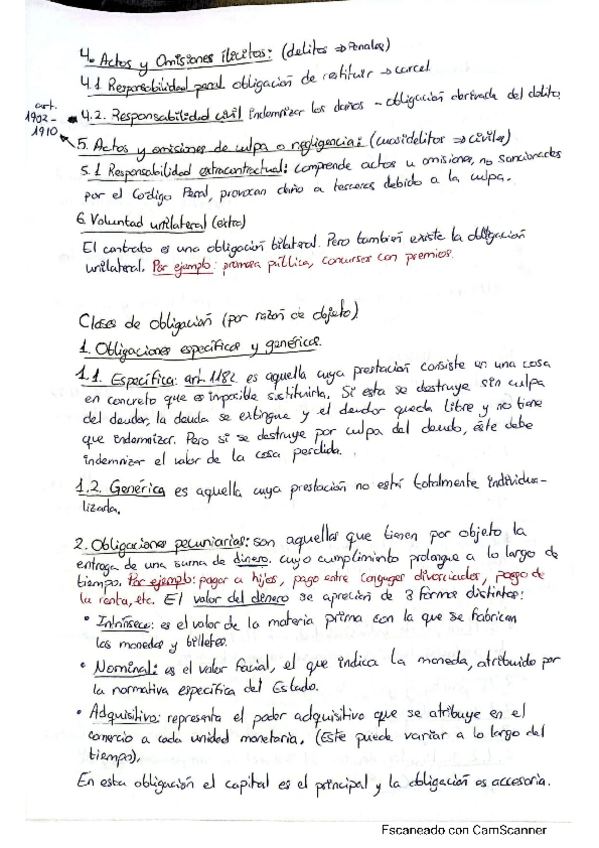 4. Actos y Omisiones ilícitas: (delitos => Penales)
4.1 Responsabilidad penal obligación de restituir → carcel
art.
1902-
1910
4.2. Responsabilidad civil indemnizar los daños - obligación derivada del delito.
5. Actos y omisiones de culpa o negligencia: (cuasidelitos => civiles)
5.1 Responsabilidad extracontractual: comprende actos u omisiones, no sancionados
por el Codigo Penal, provocan daño a terceros debido a la culpa.
6. Voluntad unilateral (extra)
El contrato es una obligación bilateral. Pero también existe la obligación
unilateral. Por ejemplo: promesa pública, concursos con premios.
Clases de obligación (por razón de objeto)
1. Obligaciones específicas y genéricas.
1.1. Específica: art. 1182 es aquella cuya prestación consiste en una cosa
en concreto que es imposible sustituirla. Si esta se destruye sin culpa
del deudor, la deuda se extingue y el deudor queda libre y no tiene
que indemnizar. Pero si se destruye por culpa del deudo, éste debe
indemnizar el valor de la cosa perdida.
1.2. Genérica es aquella cuya prestación no está totalmente individua-
lizada.
2. Obligaciones pecuniarias: son aquellas que tienen por objeto la
entrega de una suma de dinero. cuyo cumplimiento prolongue a lo largo de
tiempo. Por ejemplo: pagar a hijos, pago entre conjuges divorciados, pago de
la renta, etc. El valor del dinero se aprecian de 3 formas distintas:
• Intrínseco: es el valor de la materia prima con la que se fabrican
las monedas y billetes.
• Nominal: es el valor facial, el que indica la moneda, atribuido por
la normativa específica del Estado.
• Adquisitivo: representa el poder adquisitivo que se atribuye en el
comercio a cada unidad monetaria. (Este puede variar a lo largo del
tiempo).
En esta obligación el capital es el principal y la obligación es accesoria.
Escaneado con CamScanner